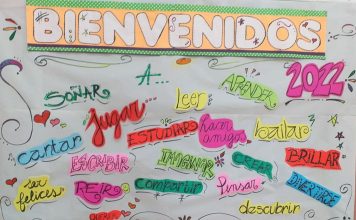 BIENVENIDOS
A...
2022
SOÑAR
JUGAR
Leer
APRENDER
ESTUDIAR
hacer amigos
bailar
cantar
ESCRIBIR
IMAGINAR
CREAR
BRILLAR
ser felices
REIR
compartir
Pensar
DIVERTIRSE
descubrir